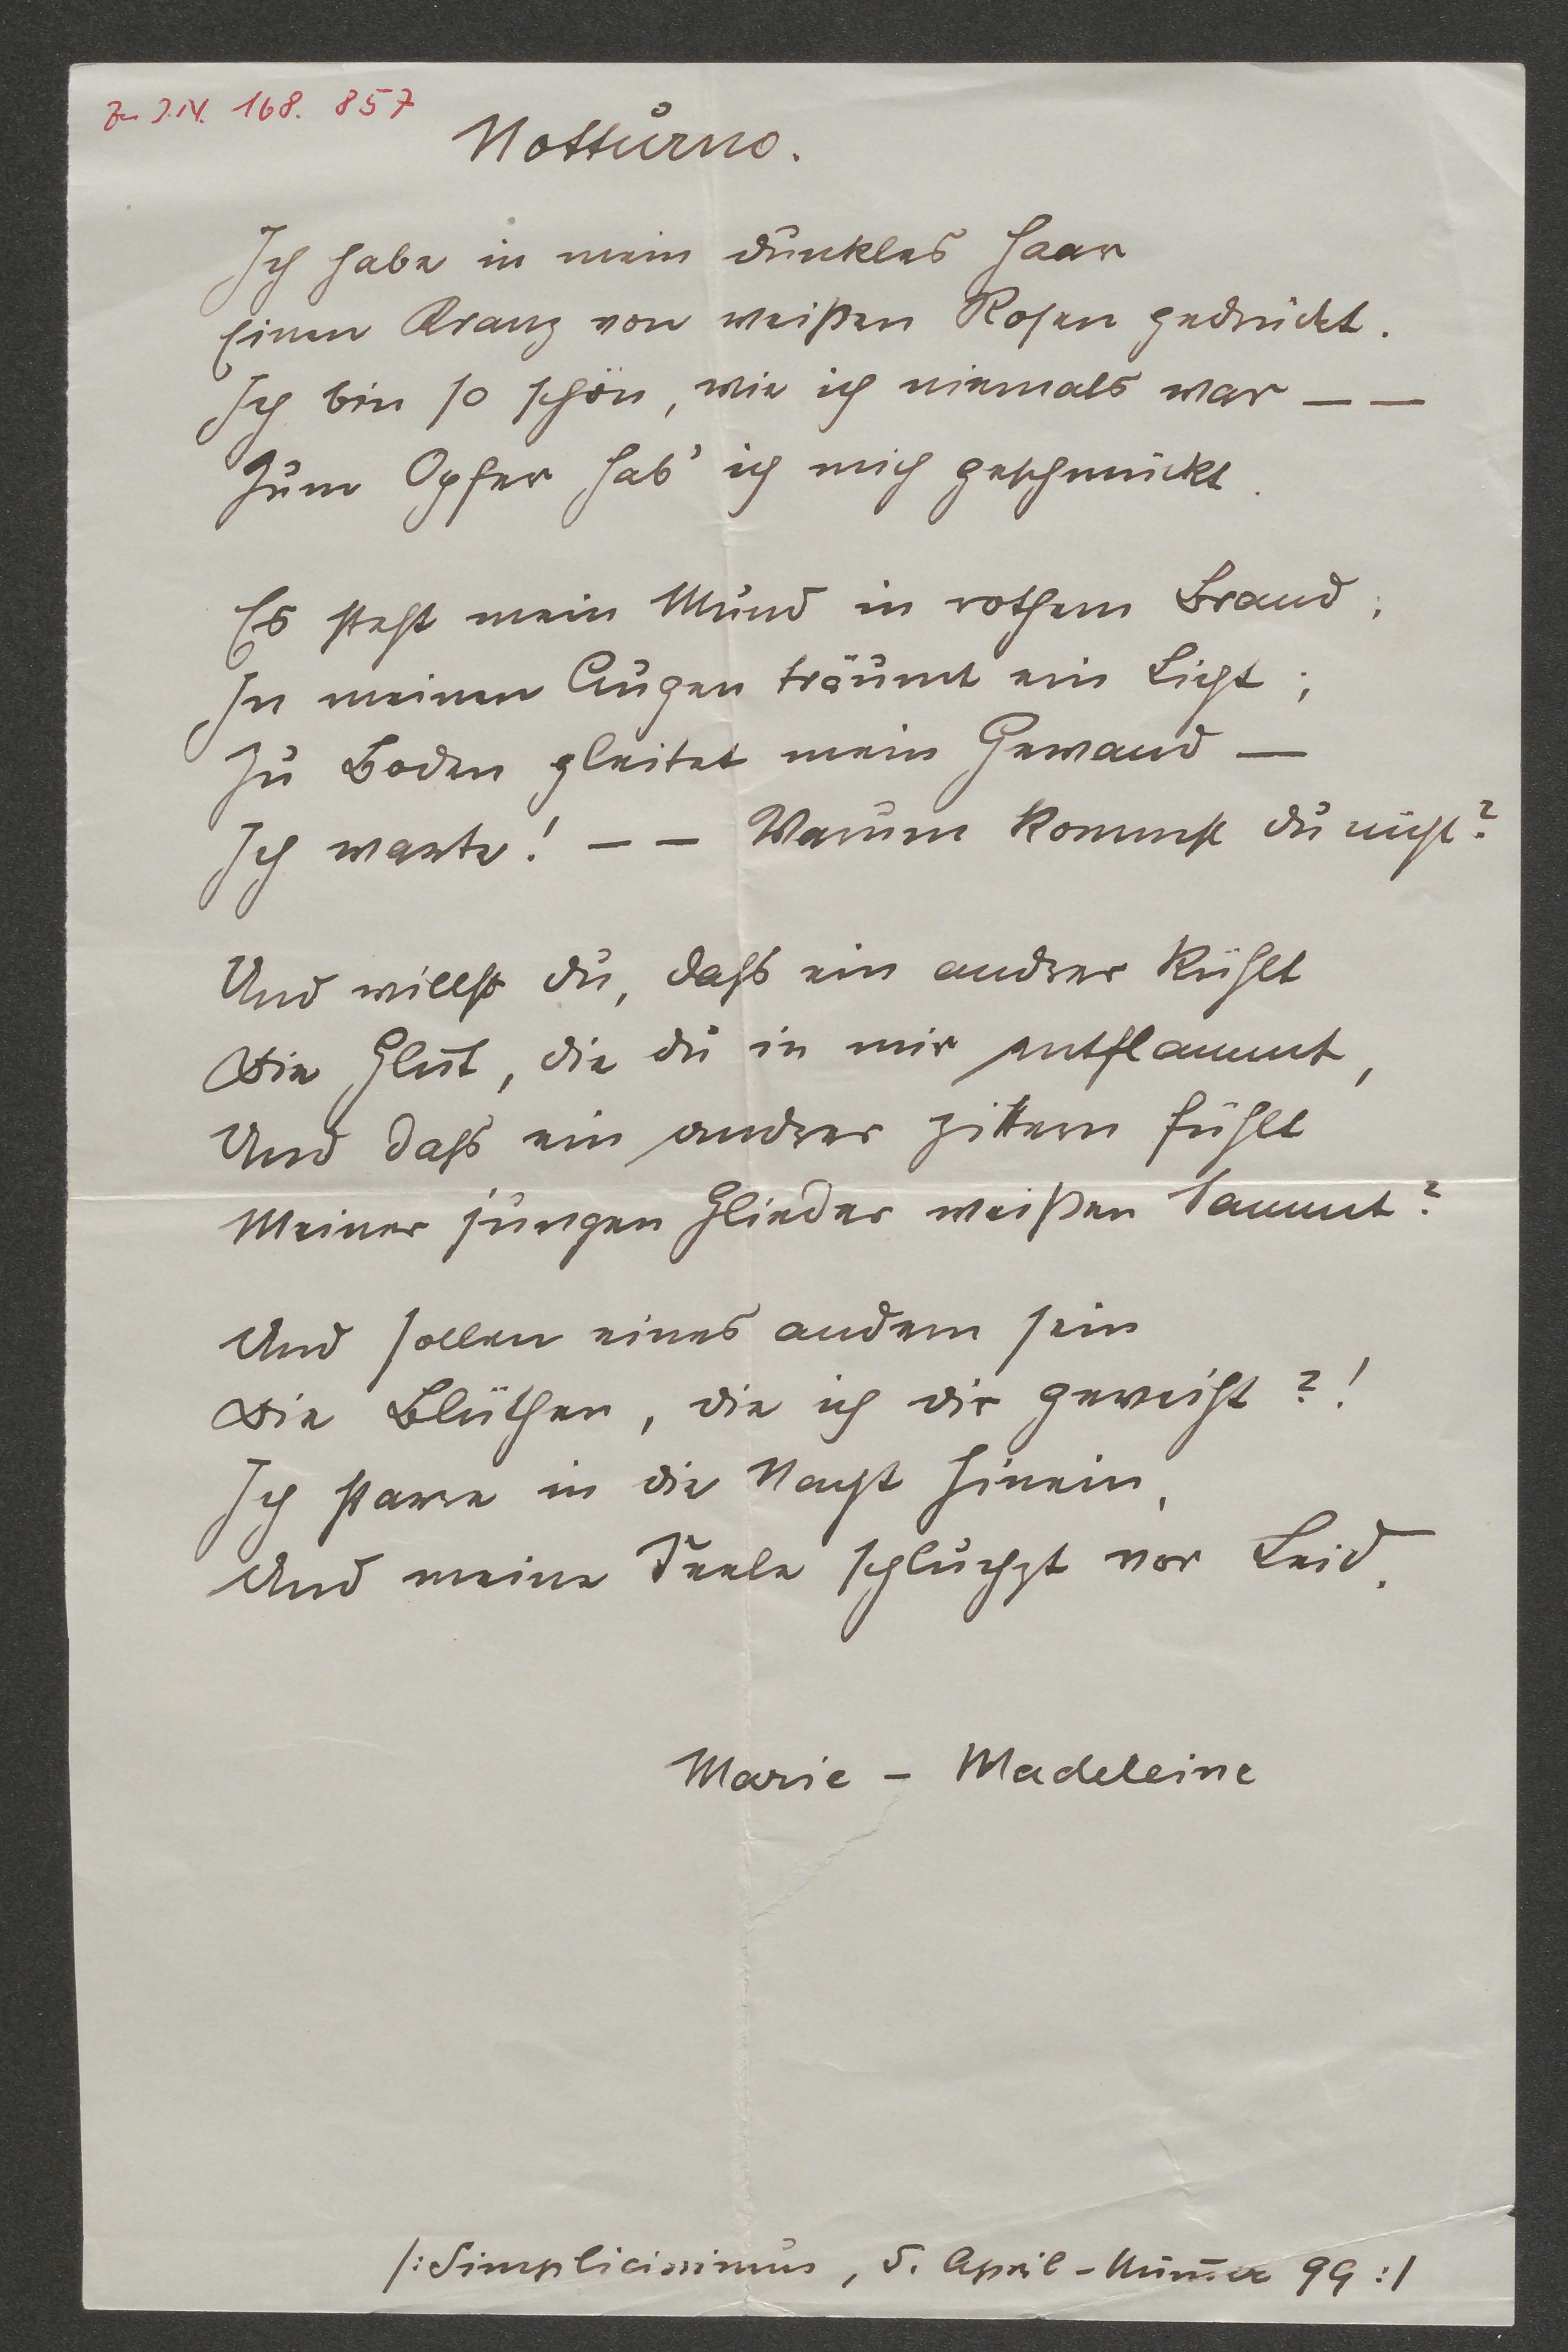 Zu I.N. 168.857
Notturno.
Ich habe in mein dunkles Haar
Einen Kranz von weißen Rosen gedrückt.
Ich bin so schön, wie ich niemals war – –
Zum Opfer hab' ich mich geschmückt.
Es steht mein Mund in rothem Brand;
In meinen Augen träumt ein Licht;
Zu Boden gleitet mein Gewand –
Ich warte! – – Warum kommst du nicht?
Und willst du, dass ein andrer kühlt
Die Glut, die du in mir entflammt,
Und dass ein andrer zittern fühlt
Meiner jungen Glieder weißen Sammt?
Und sollen eines andern sein
Die Blüthen, die ich dir geweiht?!
Ich starre in die Nacht hinein,
Und meine Seele schluchzt vor Leid.
Marie – Madeleine
/: Simplicissimus, 5. April-Num̅er 99 :/